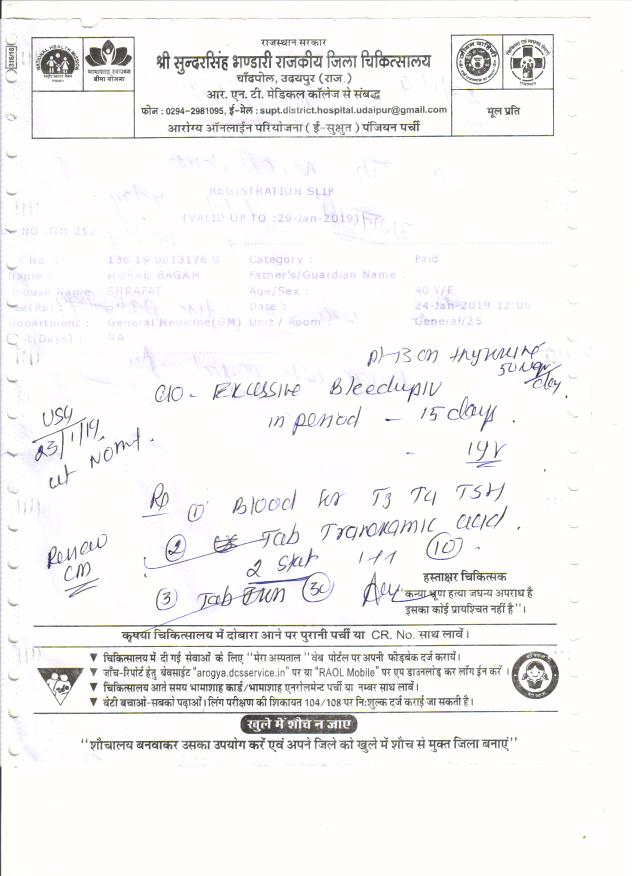 316/18
NATIONAL HEALTH MISSION
भामाशाह स्वास्थ्य
बीमा योजना
राजस्थान सरकार
श्री सुन्दरसिंह भण्डारी राजकीय जिला चिकित्सालय
चाँदपोल, उदयपुर (राज.)
आर. एन. टी. मेडिकल कॉलेज से संबद्ध
फोन : 0294-2981095, ई-मेल : supt.district.hospital.udaipur@gmail.com
आरोग्य ऑनलाईन परियोजना ( ई-सुश्रुत ) पंजियन पर्ची
मूल प्रति
REGISTRATION SLIP
(VALID UP TO :29-Jan-2019)
NO :GM 253
No. : 138 19 0013176 0 Category : Paid
Name : MURAD BAGAM Father's/Guardian Name :
Spouse Name: SHRAFAT Age/Sex : 40 Y/F
Fee(Rs) : Date : 24-Jan-2019 12:06
Department : General Medicine(GM) Unit / Room : General/25
Unit(Days) : NA
on thyroxine
50 day
C/O - Excessive
in period - 15 days.
- 1 yr
USG
23/1/19
Rp ① Blood for T3 T4 TSH
② Tab Tranexamic acid.
2 stat 1-1-1 ⑩
Review
③ Tab ㉚
हस्ताक्षर चिकित्सक
"कन्या भ्रूण हत्या जघन्य अपराध है
इसका कोई प्रायश्चित नहीं है"।
कृपया चिकित्सालय में दोबारा आने पर पुरानी पर्ची या CR. No. साथ लावें।
▼ चिकित्सालय में दी गई सेवाओं के लिए "मेरा अस्पताल" वेब पोर्टल पर अपनी फीडबेक दर्ज करायें।
▼ जाँच-रिपोर्ट हेतु वेबसाईट "arogya.dcsservice.in" पर या "RAOL Mobile" पर एप डाउनलोड कर लॉग ईन करें ।
▼ चिकित्सालय आते समय भामाशाह कार्ड/भामाशाह एनरोलमेन्ट पर्ची या नम्बर साथ लावें।
▼ बेटी बचाओ-सबको पढ़ाओ। लिंग परीक्षण की शिकायत 104/108 पर नि:शुल्क दर्ज कराई जा सकती है।
खुले में शौच न जाए
"शौचालय बनवाकर उसका उपयोग करें एवं अपने जिले को खुले में शौच से मुक्त जिला बनाएं"